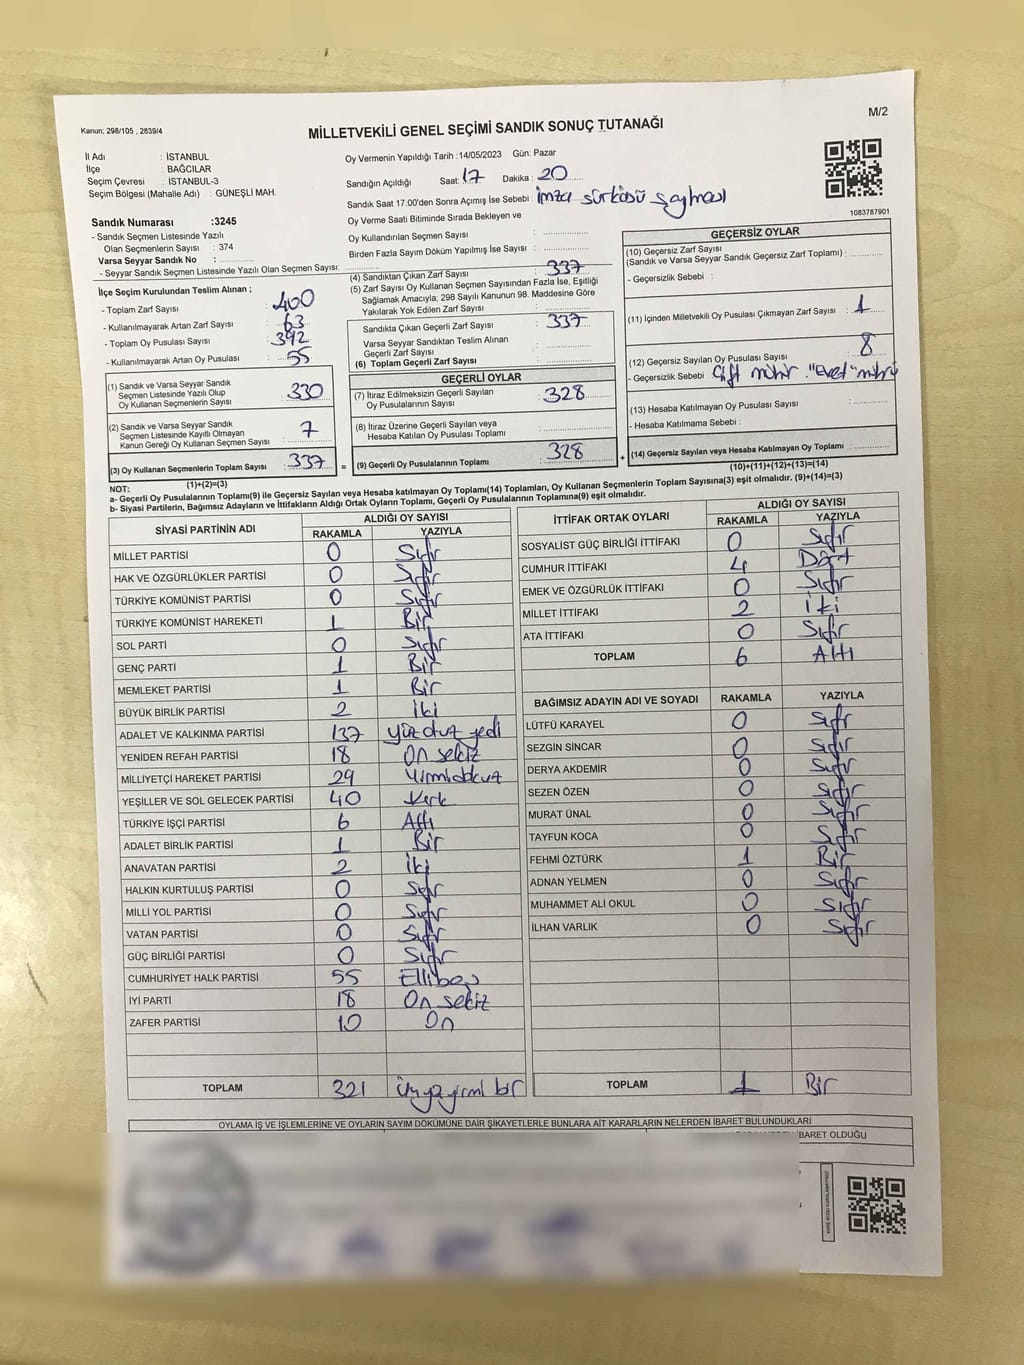 Kanun; 298/105 , 2839/4
MİLLETVEKİLİ GENEL SEÇİMİ SANDIK SONUÇ TUTANAĞI
M/2
İl Adı : İSTANBUL
İlçe : BAĞCILAR
Seçim Çevresi : İSTANBUL-3
Seçim Bölgesi (Mahalle Adı) : GÜNEŞLİ MAH.
Sandık Numarası :3245
- Sandık Seçmen Listesinde Yazılı
Olan Seçmenlerin Sayısı : 374
Varsa Seyyar Sandık No :
- Seyyar Sandık Seçmen Listesinde Yazılı Olan Seçmen Sayısı:
Oy Vermenin Yapıldığı Tarih :14/05/2023 Gün: Pazar
Sandığın Açıldığı Saat: 17 Dakika : 20
Sandık Saat 17:00'den Sonra Açımış İse Sebebi : İmza sürküsü sayması
Oy Verme Saati Bitiminde Sırada Bekleyen ve
Oy Kullandırılan Seçmen Sayısı :
Birden Fazla Sayım Döküm Yapılmış İse Sayısı :
1083787901
İlçe Seçim Kurulundan Teslim Alınan ;
- Toplam Zarf Sayısı : 400
- Kullanılmayarak Artan Zarf Sayısı : 63
- Toplam Oy Pusulası Sayısı : 392
- Kullanılmayarak Artan Oy Pusulası : 55
(1) Sandık ve Varsa Seyyar Sandık
Seçmen Listesinde Yazılı Olup
Oy Kullanan Seçmenlerin Sayısı : 330
(2) Sandık ve Varsa Seyyar Sandık
Seçmen Listesinde Kayıtlı Olmayan
Kanun Gereği Oy Kullanan Seçmen Sayısı : 7
(3) Oy Kullanan Seçmenlerin Toplam Sayısı : 337
(1)+(2)=(3)
(4) Sandıktan Çıkan Zarf Sayısı : 337
(5) Zarf Sayısı Oy Kullanan Seçmen Sayısından Fazla İse, Eşitliği
Sağlamak Amacıyla; 298 Sayılı Kanunun 98. Maddesine Göre
Yakılarak Yok Edilen Zarf Sayısı :
Sandıkta Çıkan Geçerli Zarf Sayısı : 337
Varsa Seyyar Sandıktan Teslim Alınan
Geçerli Zarf Sayısı :
(6) Toplam Geçerli Zarf Sayısı :
GEÇERLİ OYLAR
(7) İtiraz Edilmeksizin Geçerli Sayılan
Oy Pusulalarının Sayısı : 328
(8) İtiraz Üzerine Geçerli Sayılan veya
Hesaba Katılan Oy Pusulası Toplamı :
= (9) Geçerli Oy Pusulalarının Toplamı : 328 +
GEÇERSİZ OYLAR
(10) Geçersiz Zarf Sayısı
(Sandık ve Varsa Seyyar Sandık Geçersiz Zarf Toplamı) :
- Geçersizlik Sebebi :
(11) İçinden Milletvekili Oy Pusulası Çıkmayan Zarf Sayısı : 1
(12) Geçersiz Sayılan Oy Pusulası Sayısı : 8
- Geçersizlik Sebebi Çift mühür. "Evet" mührü
(13) Hesaba Katılmayan Oy Pusulası Sayısı :
- Hesaba Katılmama Sebebi :
(14) Geçersiz Sayılan veya Hesaba Katılmayan Oy Toplamı :
(10)+(11)+(12)+(13)=(14)
NOT:
a- Geçerli Oy Pusulalarının Toplamı(9) ile Geçersiz Sayılan veya Hesaba katılmayan Oy Toplamı(14) Toplamları, Oy Kullanan Seçmenlerin Toplam Sayısına(3) eşit olmalıdır. (9)+(14)=(3)
b- Siyasi Partilerin, Bağımsız Adayların ve İttifakların Aldığı Ortak Oyların Toplamı, Geçerli Oy Pusulalarının Toplamına(9) eşit olmalıdır.
SİYASİ PARTİNİN ADI ALDIĞI OY SAYISI
RAKAMLA YAZIYLA
MİLLET PARTİSİ 0 Sıfır
HAK VE ÖZGÜRLÜKLER PARTİSİ 0 Sıfır
TÜRKİYE KOMÜNİST PARTİSİ 0 Sıfır
TÜRKİYE KOMÜNİST HAREKETİ 1 Bir
SOL PARTİ 0 Sıfır
GENÇ PARTİ 1 Bir
MEMLEKET PARTİSİ 1 Bir
BÜYÜK BİRLİK PARTİSİ 2 İki
ADALET VE KALKINMA PARTİSİ 137 yüz otuz yedi
YENİDEN REFAH PARTİSİ 18 On sekiz
MİLLİYETÇİ HAREKET PARTİSİ 29 Yirmidokuz
YEŞİLLER VE SOL GELECEK PARTİSİ 40 Kırk
TÜRKİYE İŞÇİ PARTİSİ 6 Altı
ADALET BİRLİK PARTİSİ 1 Bir
ANAVATAN PARTİSİ 2 İki
HALKIN KURTULUŞ PARTİSİ 0 Sıfır
MİLLİ YOL PARTİSİ 0 Sıfır
VATAN PARTİSİ 0 Sıfır
GÜÇ BİRLİĞİ PARTİSİ 0 Sıfır
CUMHURİYET HALK PARTİSİ 55 Ellibeş
İYİ PARTİ 18 On sekiz
ZAFER PARTİSİ 10 On
TOPLAM 321 Üçyüzyirmi bir
İTTİFAK ORTAK OYLARI ALDIĞI OY SAYISI
RAKAMLA YAZIYLA
SOSYALİST GÜÇ BİRLİĞİ İTTİFAKI 0 Sıfır
CUMHUR İTTİFAKI 4 Dört
EMEK VE ÖZGÜRLÜK İTTİFAKI 0 Sıfır
MİLLET İTTİFAKI 2 İki
ATA İTTİFAKI 0 Sıfır
TOPLAM 6 Altı
BAĞIMSIZ ADAYIN ADI VE SOYADI RAKAMLA YAZIYLA
LÜTFÜ KARAYEL 0 Sıfır
SEZGİN SİNCAR 0 Sıfır
DERYA AKDEMİR 0 Sıfır
SEZEN ÖZEN 0 Sıfır
MURAT ÜNAL 0 Sıfır
TAYFUN KOCA 0 Sıfır
FEHMİ ÖZTÜRK 1 Bir
ADNAN YELMEN 0 Sıfır
MUHAMMET ALİ OKUL 0 Sıfır
İLHAN VARLIK 0 Sıfır
TOPLAM 1 Bir
OYLAMA İŞ VE İŞLEMLERİNE VE OYLARIN SAYIM DÖKÜMÜNE DAİR ŞİKAYETLERLE BUNLARA AİT KARARLARIN NELERDEN İBARET BULUNDUKLARI
İBARET OLDUĞU